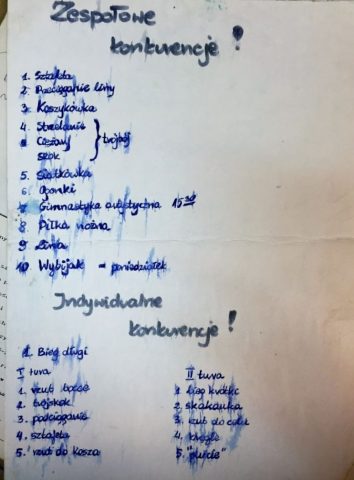 Zespołowe
konkurencje!
1. Sztafeta
2 Przeciąganie liny
3 Koszykówka
4 Strzelanie
5 Ciężary } trójbój
Skok
5. Siatkówka
6
7 Gimnastyka artystyczna 15 30
8 Piłka nożna
9 Linia
10 Wybijak = poniedziałek
Indywidualne
konkurencje!
1. Bieg długi
I tura
1. rzut
2. trójskok
3. podciąganie
4. sztafeta
5. rzut do kosza
II tura
1 bieg krótki
2. skakanka
3. rzut do celu
4. kręgle
5.